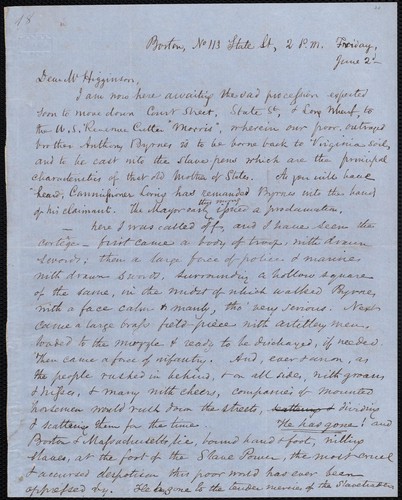 Boston, No 113 State St, 2 P.M. Friday,
June 2d
Dear Mr Higginson,
I am now here awaiting the sad procession expected
soon to move down Court Street, State St, & Long Wharf, to
the U.S. Revenue Cutter "Morris", wherein our poor, outraged
brother Anthony Byrnes is to be borne back to Virginia soil,
and to be cast into the slave pens which are the principal
characteristics of that old Mother of States. (As you will have
heard, Commissioner Loring has remanded Byrnes into the hands
of his claimant. The Mayor early this morng issued a proclamation.
— here I was called off, and I have seen the
cortége — first came a body of troops, with drawn
swords; then a large force of police & marines
with drawn swords, surrounding a hollow square
of the same, in the midst of which walked Byrnes,
with a face calm & manly, tho' very serious. Next
came a large brass field-piece with artillery men,
loaded to the muzzle & ready to be discharged, if needed.
Then came a force of infantry. And, ever & anon, as
the people rushed in behind, & on all sides, with groans
& hisses, & many with cheers, companies of mounted
horsemen would rush down the streets, dividing
& scattering them for the time. He has gone! and
Boston & Massachusetts lie, bound hand & foot, willing
slaves, at the foot of the Slave Power, the most cruel
& accursed despotism this poor world has ever been
oppressed by. He is gone to the tender mercies of the Slaveholders